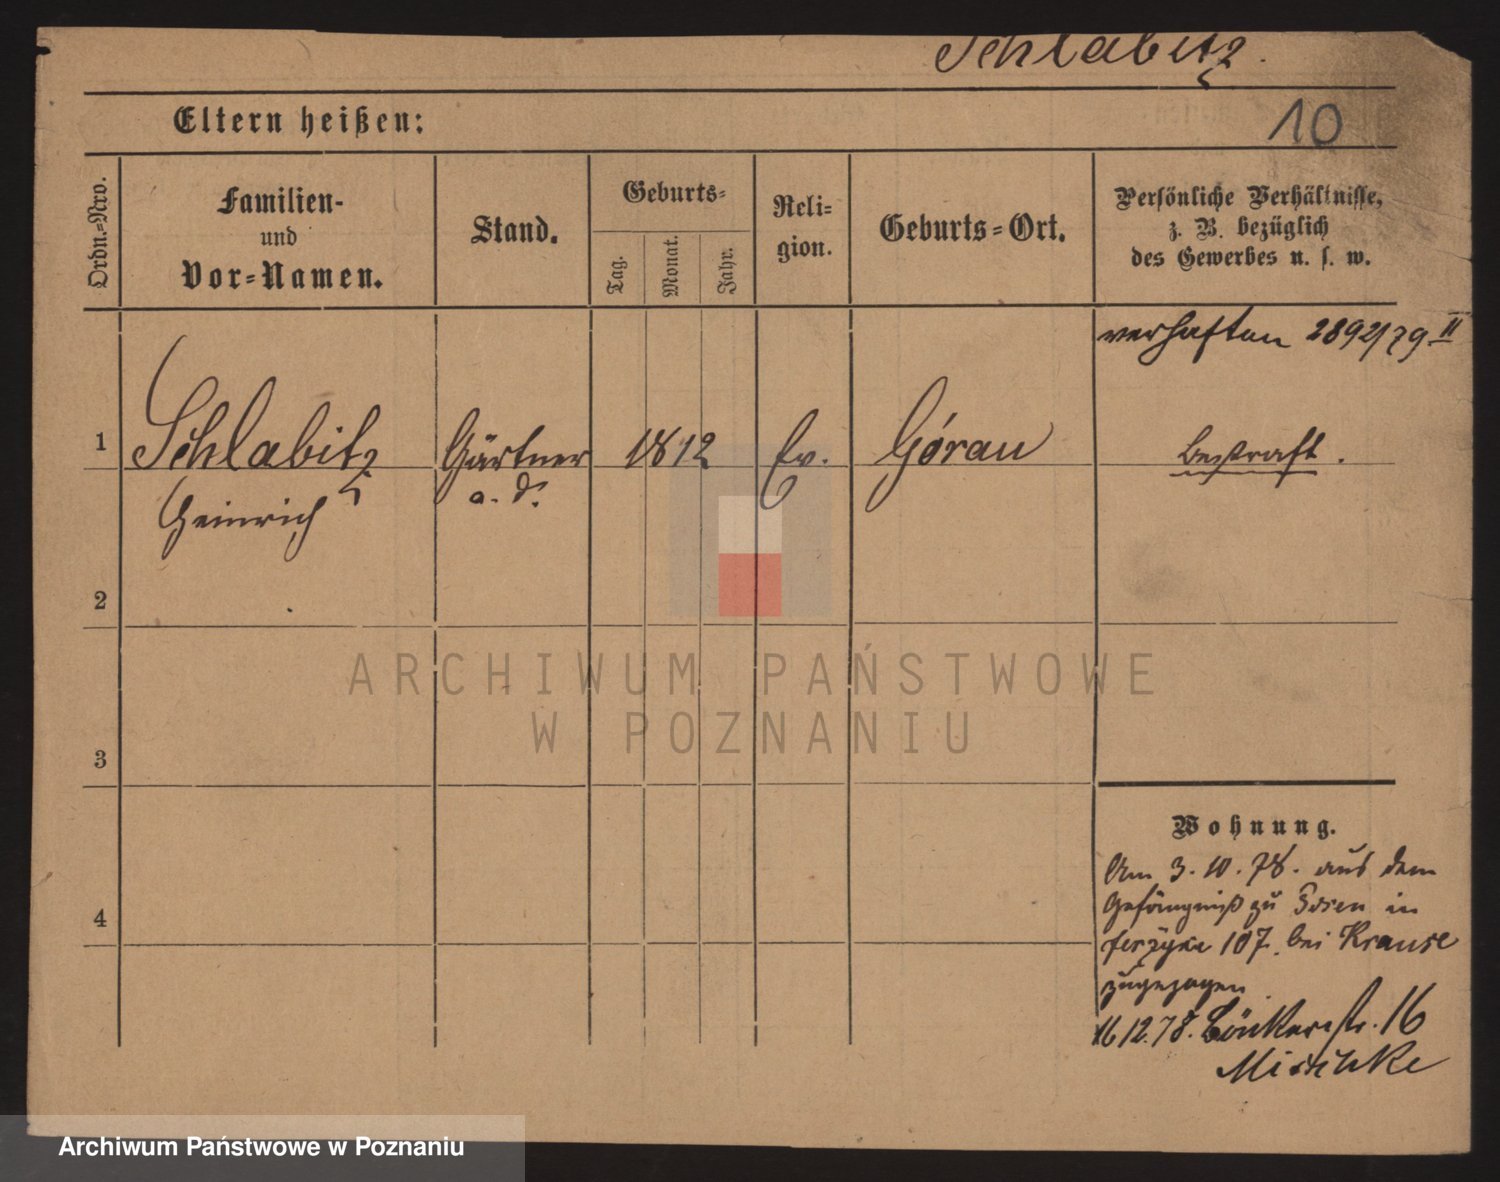 Schlabitz.
Eltern heißen:
10
Ordn.-Nro.
Familien-
und
Vor-Namen.
Stand.
Geburts-
Tag.
Monat.
Jahr.
Reli-
gion.
Geburts-Ort.
Persönliche Verhältnisse,
z. B. bezüglich
des Gewerbes u. s. w.
verhaften 2892/79 II
1
Schlabitz
Heinrich
Gärtner
a. D.
1812
Ev.
Górau
bestraft.
2
3
4
ARCHIWUM PAŃSTWOWE
W POZNANIU
Wohnung.
Am 3.10.78. aus dem
Gefängniß zu Posen in
Jerzyce 107. bei Krause
zugezogen
16 12.78. 16
Mischke
Archiwum Państwowe w Poznaniu